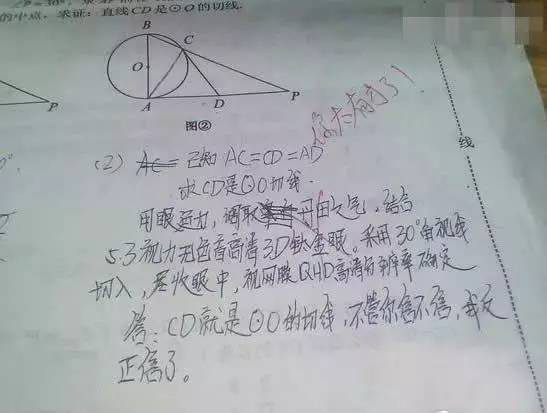 的中点. 求证: 直线CD是⊙O的切线.
B
C
O
A
D
P
P
图②
你太有才了!
线
(2) AC= 已知 AC=CD=AD
求CD是⊙O切线.
用眼运力, 调取丹田之气, 结合
5.3视力无色盲高清3D钛金眼. 采用30°角视线
切入, 尽收眼中, 视网膜QHD高清分辨率确定
答: CD就是⊙O的切线, 不管你信不信, 我反
正信了。